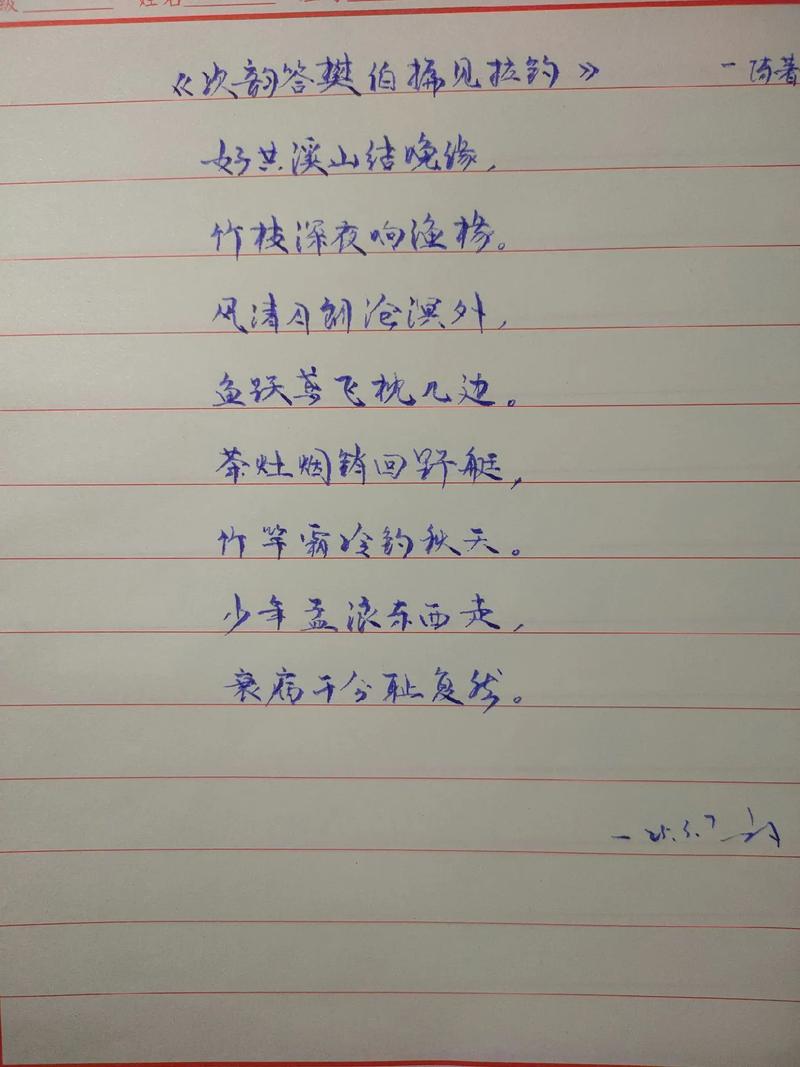 级 姓名
《次韵答樊伯搢见拉钓》 一陈著
好共溪山结晚缘,
竹枝深夜响渔椽。
风清月朗沧溟外,
鱼跃鸢飞枕几边。
茶灶烟销回野艇,
竹竿霜冷钓秋天。
少年孟浪东西走,
衰病于今耻复然。
一25.5.7